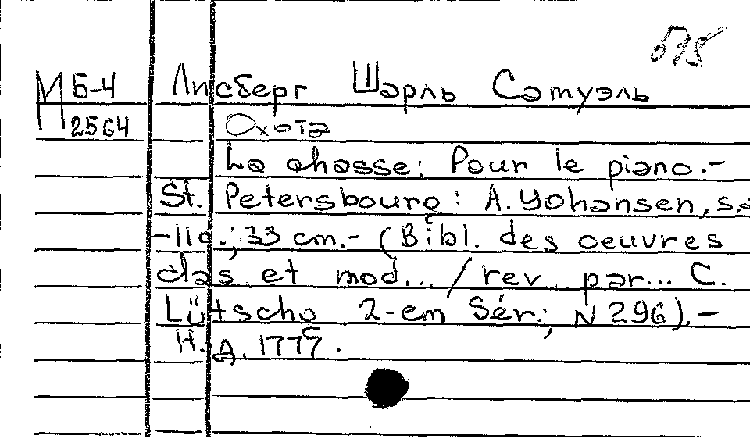 575
М Б-4 Лисберг Шарль Самуэль
2564 Охота
La chasse: Pour le piano.-
St. Petersbourg: A. Yohansen, s.a
-11 с.; 33 cm.- (Bibl. des oeuvres
clas et mod... / rev par... C.
Lütscho 2-em Sér.; N 296).-
Н. Д. 1779.